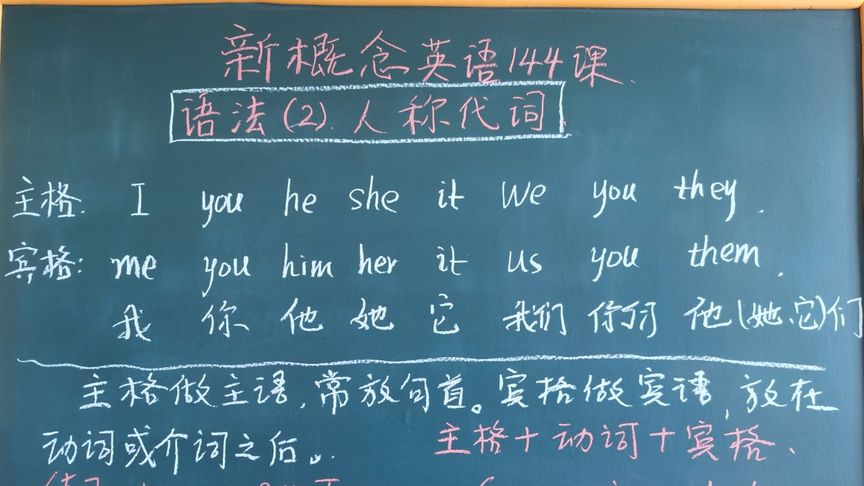 新概念英语144课.
语法(2).人称代词
主格. I you he she it we you they.
宾格: me you him her it us you them.
我 你 他 她 它 我们 你们 他(她、它)们
主格做主语,常放句首。宾格做宾语,放在
动词或介词之后。 主格+动词+宾格.